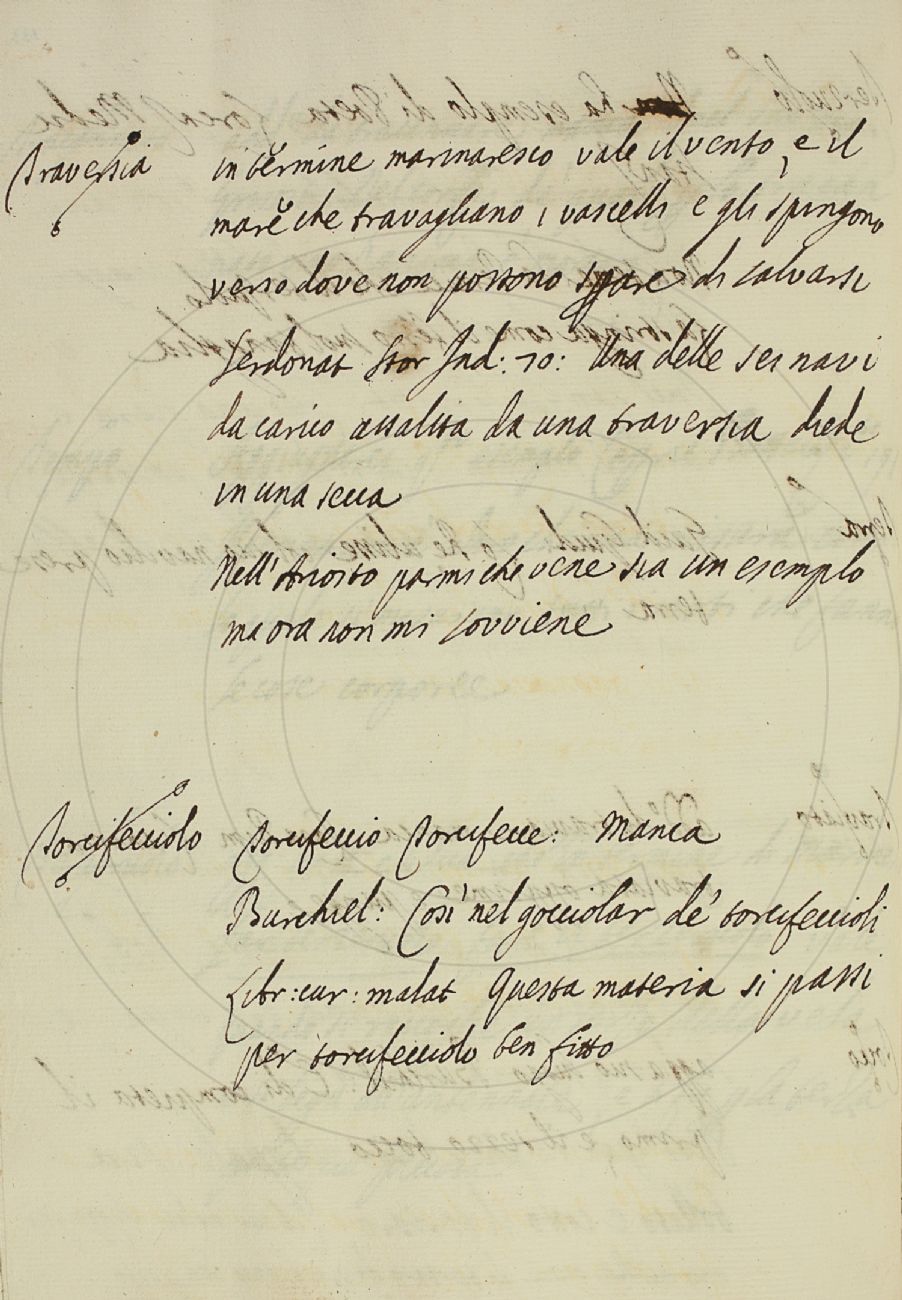 Traversia in termine marinaresco vale il vento, e il
mare che travagliano i vascelli e gli spingono
verso dove non possono sperare di salvarsi
Serdonat Stor Ind: 10: Una delle sei navi
da carico assalita da una traversia diede
in una secca
Nell'Ariosto parmi che vene sia un esempio
ma ora non mi sovviene
Torcifecciolo Torcifeccio Torcifecce: Manca
Burchiel: Così nel gocciolar de' torcifeccioli
Libr: cur: malat Questa materia si passi
per torcifecciolo ben fitto